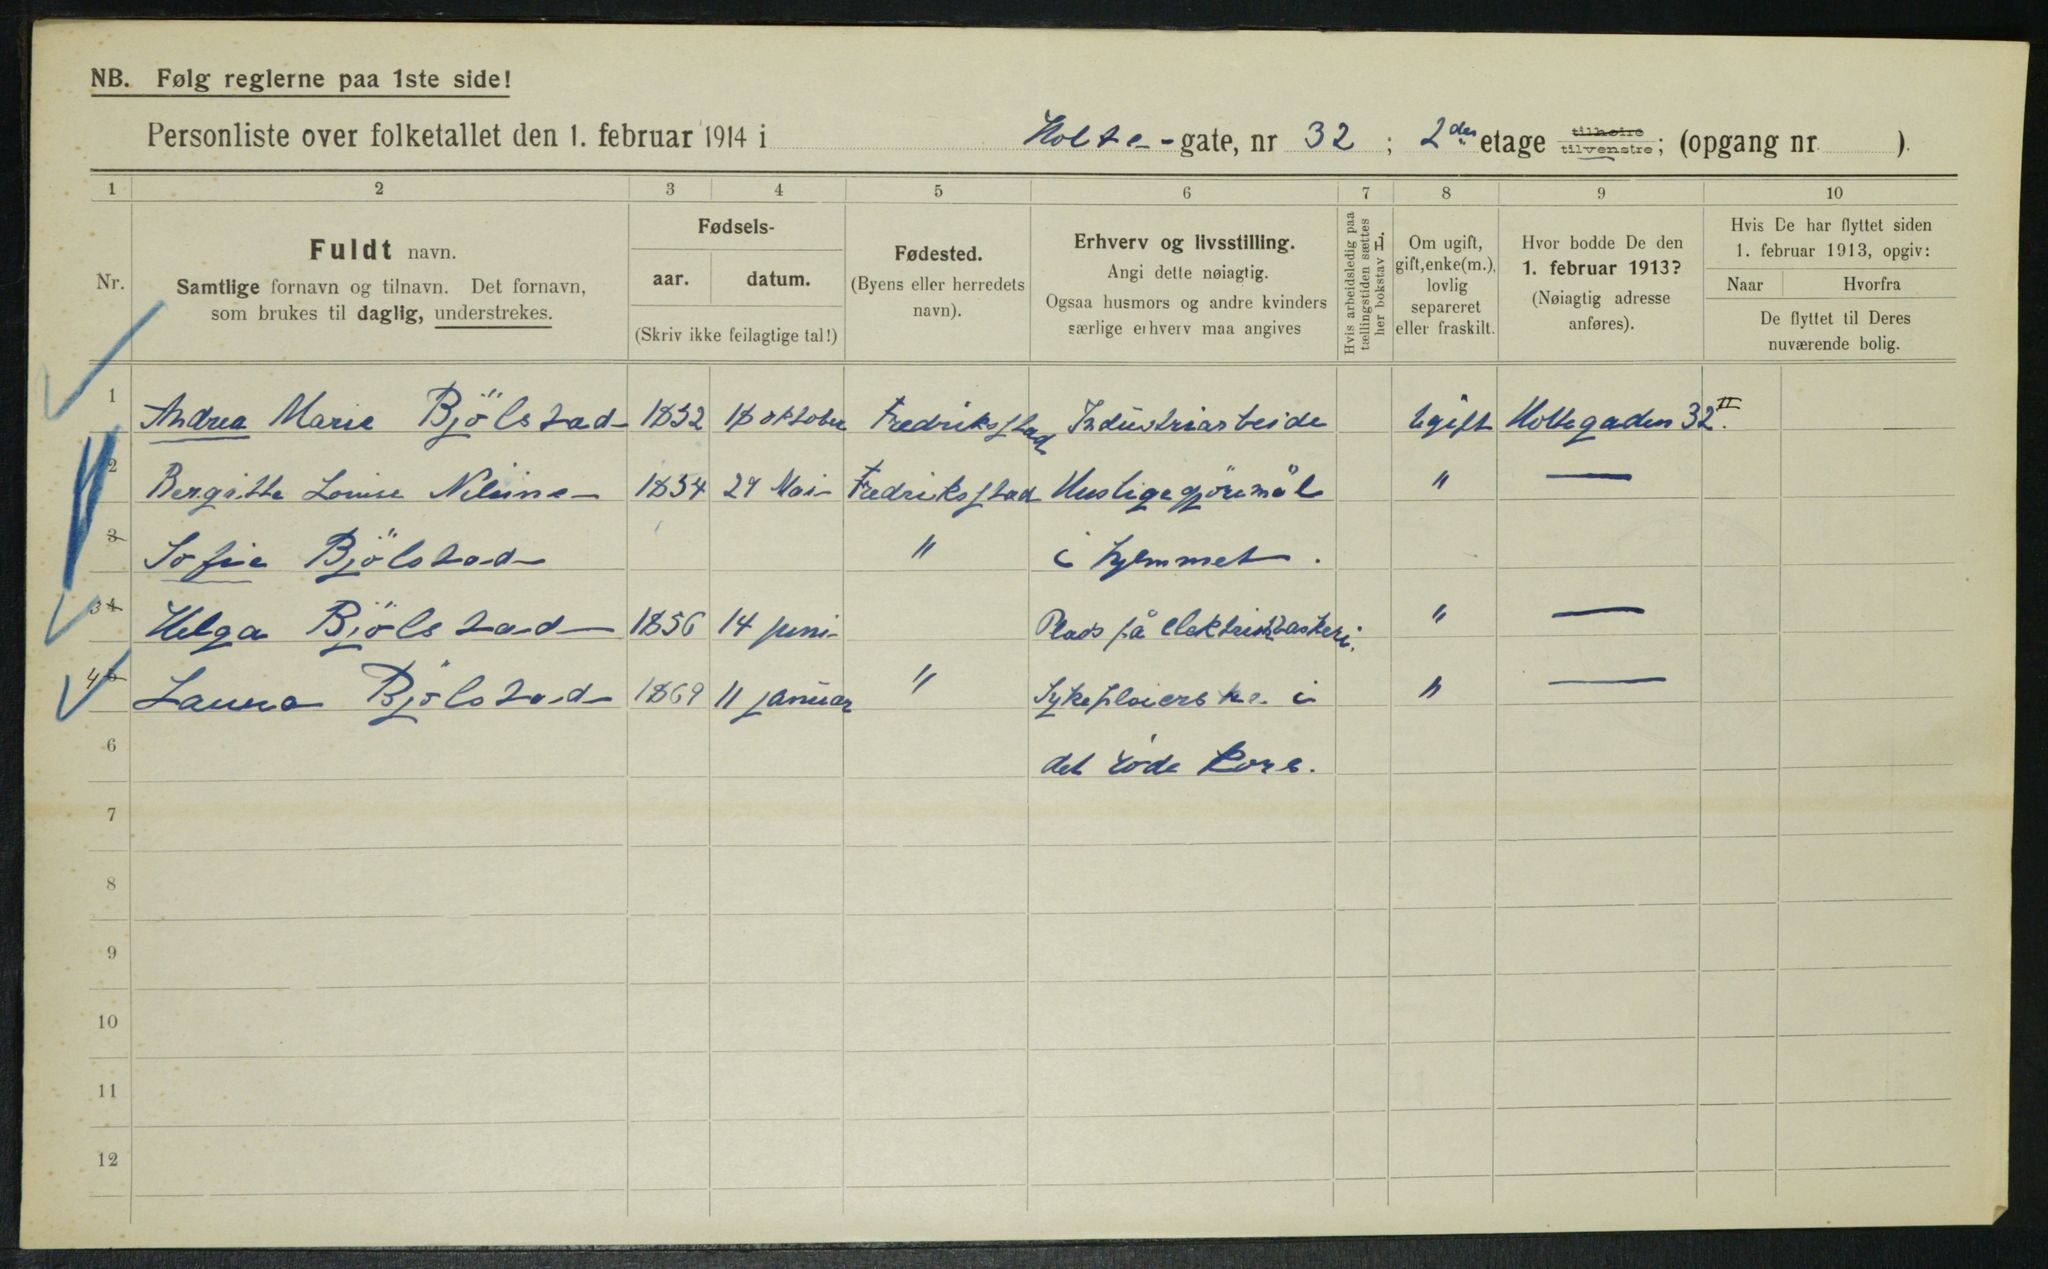 NB. Følg reglerne paa 1ste side!
Personliste over folketallet den 1. februar 1914 i Holte-gate, nr 32 ; 2den etage tilhøire tilvenstre; (opgang nr ).
1 2 3 4 5 6 7 8 9 10
Nr.
Fuldt navn.
Samtlige fornavn og tilnavn. Det fornavn,
som brukes til daglig, understrekes.
Fødsels-
aar. datum.
(Skriv ikke feilagtige tal!)
Fødested.
(Byens eller herredets
navn).
Erhverv og livsstilling.
Angi dette nøiagtig.
Ogsaa husmors og andre kvinders
særlige erhverv maa angives
Hvis arbeidsledig paa
tællingstiden sættes
her bokstav L.
Om ugift,
gift, enke(m.),
lovlig
separeret
eller fraskilt.
Hvor bodde De den
1. februar 1913?
(Nøiagtig adresse
anføres).
Hvis De har flyttet siden
1. februar 1913, opgiv:
Naar Hvorfra
De flyttet til Deres
nuværende bolig.
1 Andrea Marie Bjölstad 1852 18 oktober Fredriksstad Industriarbeide Ugift Holtegaden 32 II.
2 Bergitte Louise 1854 29 Mai Fredriksstad Husligegjöremål " —
3 Sofie Bjölstad " i hjemmet.
3 4 Helga Bjölstad 1856 14 juni Plads på " —
4 5 Laura Bjölstad 1869 11 januar " Sykepleierske i " —
6 det röde kors.
7
8
9
10
11
12